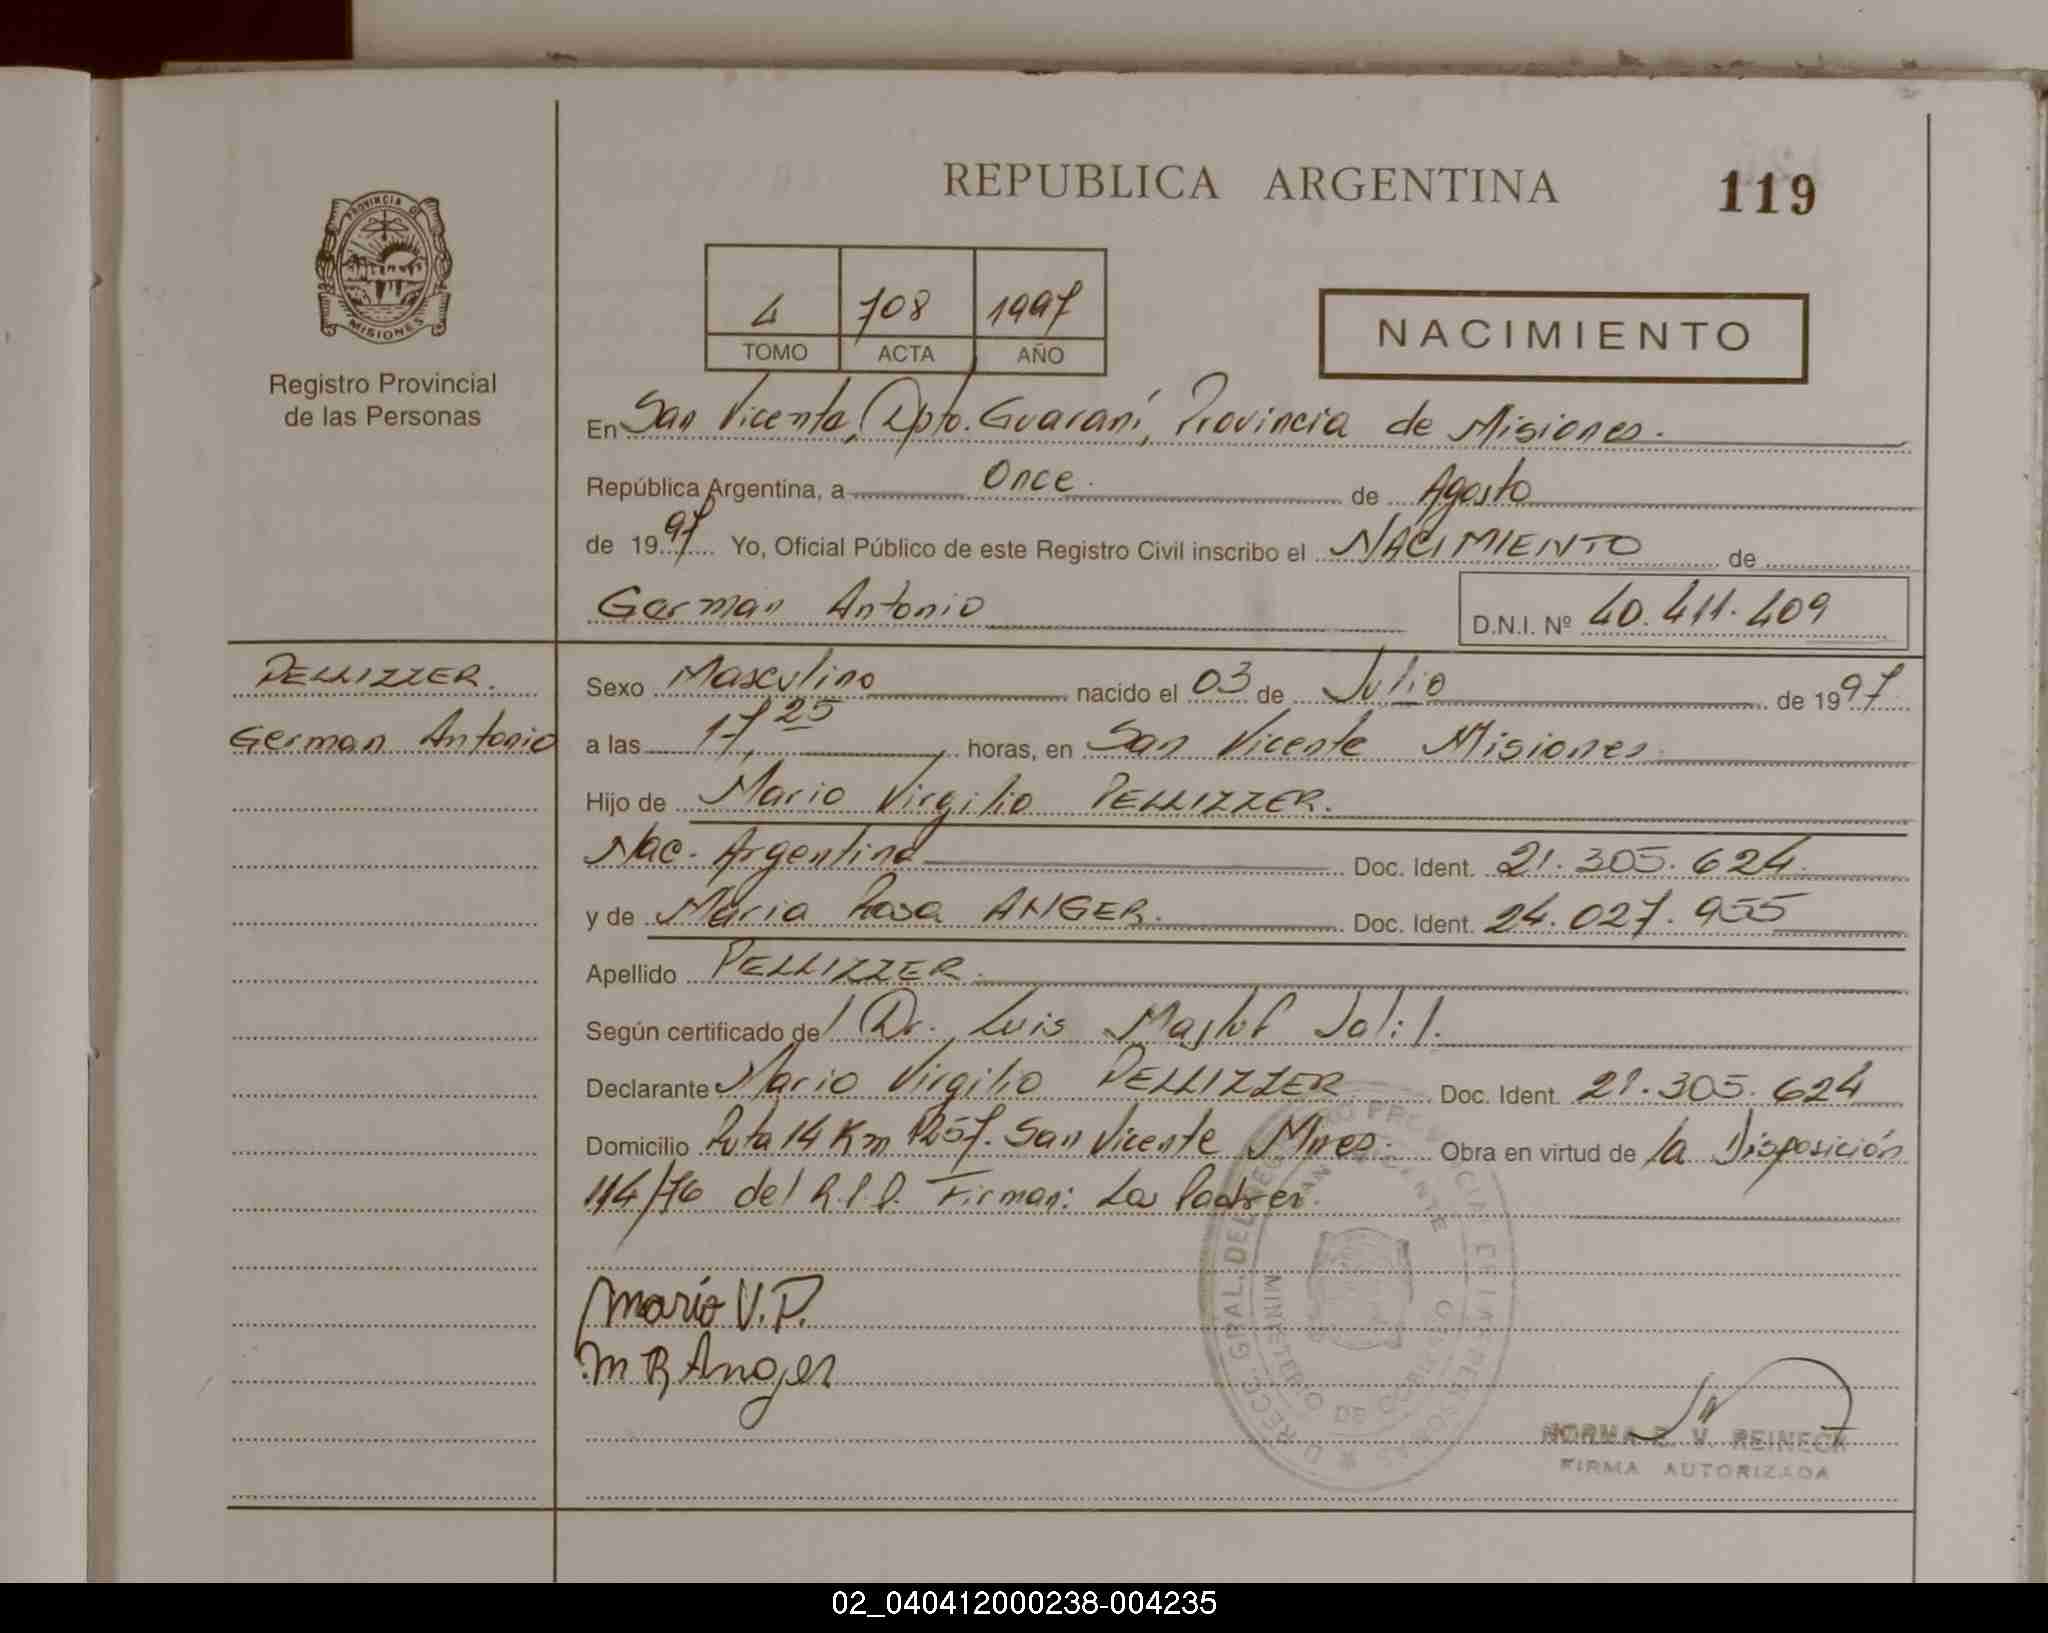 REPUBLICA ARGENTINA
119
PROVINCIA DE
MISIONES
Registro Provincial
de las Personas
4 708 1997
TOMO ACTA AÑO
NACIMIENTO
En San Vicente, Dpto. Guaraní, Provincia de Misiones.
República Argentina, a Once. de Agosto
de 1997 Yo, Oficial Público de este Registro Civil inscribo el NACIMIENTO de
German Antonio
D.N.I. Nº 40.411.409
PELLIZZER.
German Antonio
Sexo Masculino nacido el 03 de Julio de 1997
a las 17,25 horas, en San Vicente Misiones
Hijo de Mario Virgilio PELLIZZER.
Nac. Argentina Doc. Ident. 21.305.624.
y de Maria Rosa ANGER. Doc. Ident. 24.027.955
Apellido PELLIZZER.
Según certificado del Dr. Luis Jalil.
Declarante Mario Virgilio PELLIZZER Doc. Ident. 21.305.624
Domicilio Ruta 14 Km 1257. San Vicente Mnes. Obra en virtud de la Disposición
114/76 del R.P.P. Firman: Los Padres.
Mario V.P.
M R Anger
NORMA E. V. REINECK
FIRMA AUTORIZADA
02_040412000238-004235